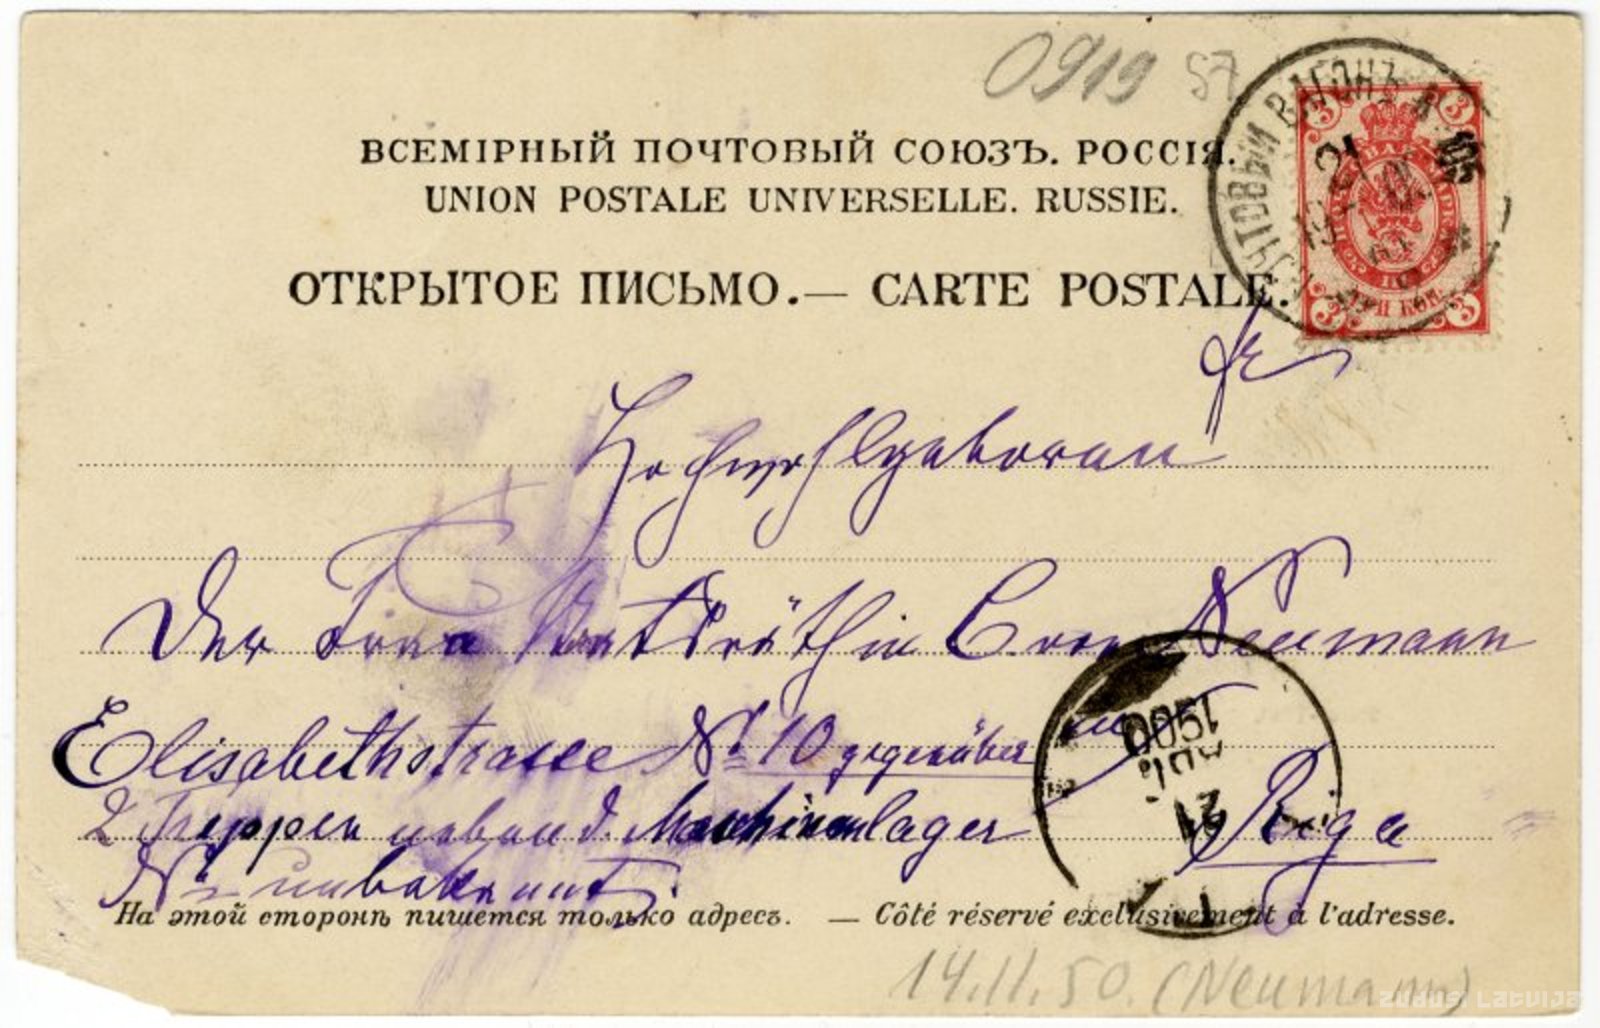 0919 57
ВСЕМІРНЫЙ ПОЧТОВЫЙ СОЮЗЪ. РОССІЯ.
UNION POSTALE UNIVERSELLE. RUSSIE.
ОТКРЫТОЕ ПИСЬМО.— CARTE POSTALE.
ПОЧТОВЫЙ ВАГОНЪ
21
Hochwohlgeboren
Der Frau Staatsräthin C. von Neumann
Elisabethstrasse № 10 gegenüber
2 Treppen neben d. Maschinenlager Riga
№ unbekannt.
21
1900
На этой сторонѣ пишется только адресъ. — Côté réservé exclusivement à l'adresse.
14.11.50. (Neumann)
zudusi Latvija